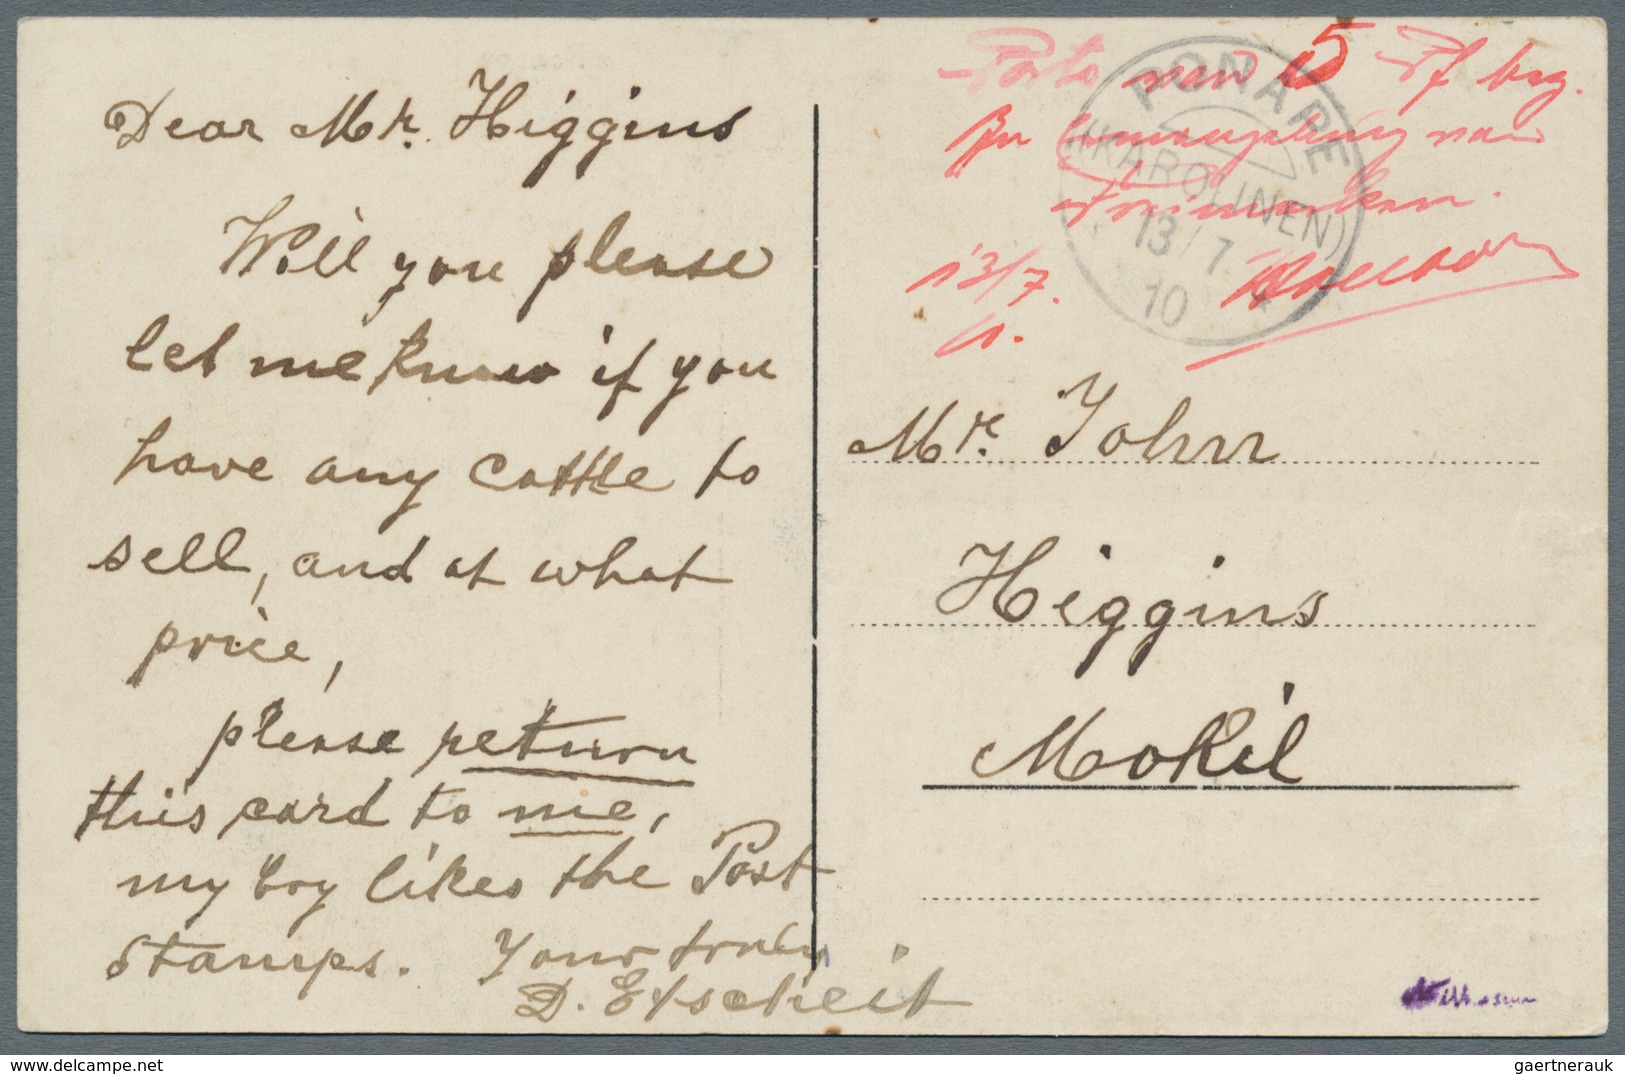 Dear Mr. Higgins
Will you please
let me know if you
have any cattle to
sell, and at what
price,
please return
this card to me,
my boy likes the Post
stamps. Your truly
D. Etscheit
Porto von 5 Pf bez.
In Ermangelung von
Freimarken.
13/7.
PONAPE
(KAROLINEN)
13/7
10
Mr. John
Higgins
Mokil
gaertnerauk.com